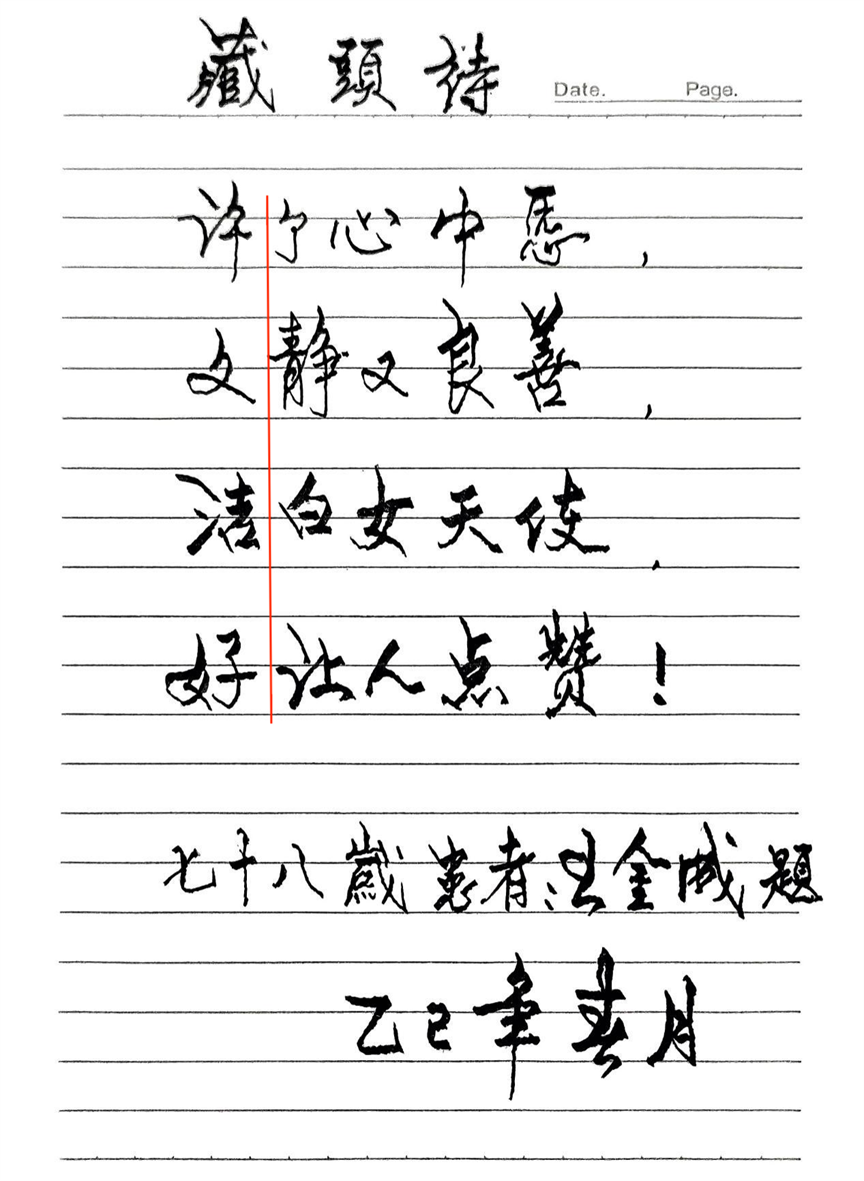 藏頭詩 Date. Page.
许予心中愿，
文静又良善，
洁白女天使．
好让人点赞！
七十八歲患者汪金成題
乙巳年春月